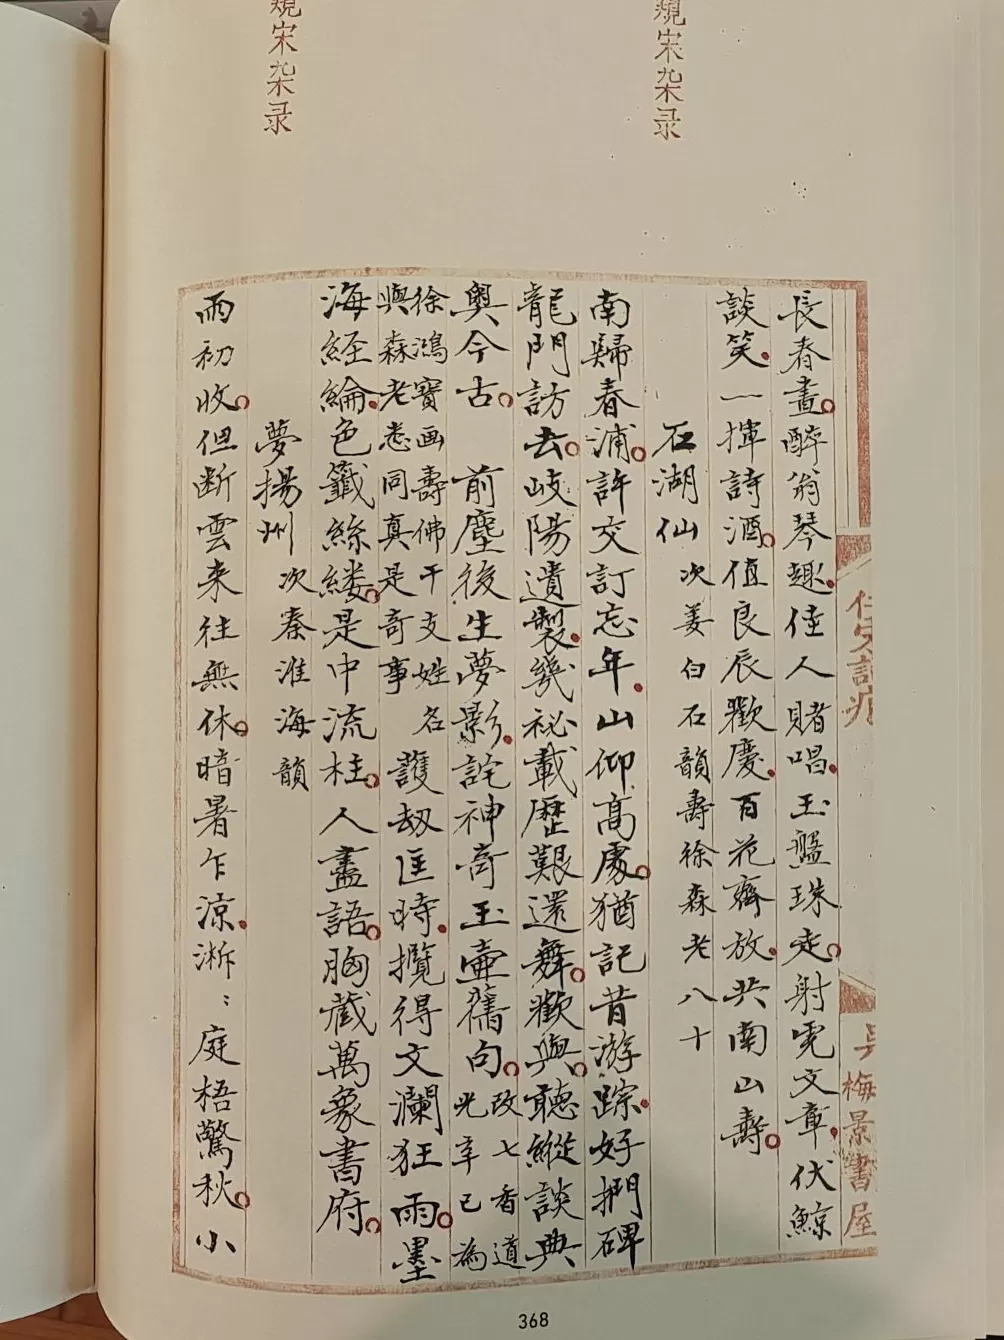 宋杂录
宋杂录
佞宋詞痕
吳 梅景書屋
長春畫。醉翁琴趣。佳人賭唱。玉盤珠走。射虎文章。伏鯨
談笑。一揮詩酒。值良辰歡慶。百花齊放。共南山壽。
石湖仙 次姜白石韻壽徐森老八十
南歸春浦。許交訂忘年。山仰高處。猶記昔游踪。好捫碑
龍門訪去。岐陽遺製。幾祕載歷艱還舞。歡與。聽縱談典
奧今古。 前塵後生夢影。詫神奇玉壷舊句。改七香道光辛巳為
徐鴻寶画壽佛干支姓名與森老悉同真是奇事 護刼匡時。攬得文瀾狂雨。墨
海経綸。色籤絲縷。是中流柱。人盡語。胸藏萬象書府。
夢揚州 次秦淮海韻
雨初收。但断雲来往無休。暗暑乍涼。淅〻庭梧驚秋。小
368